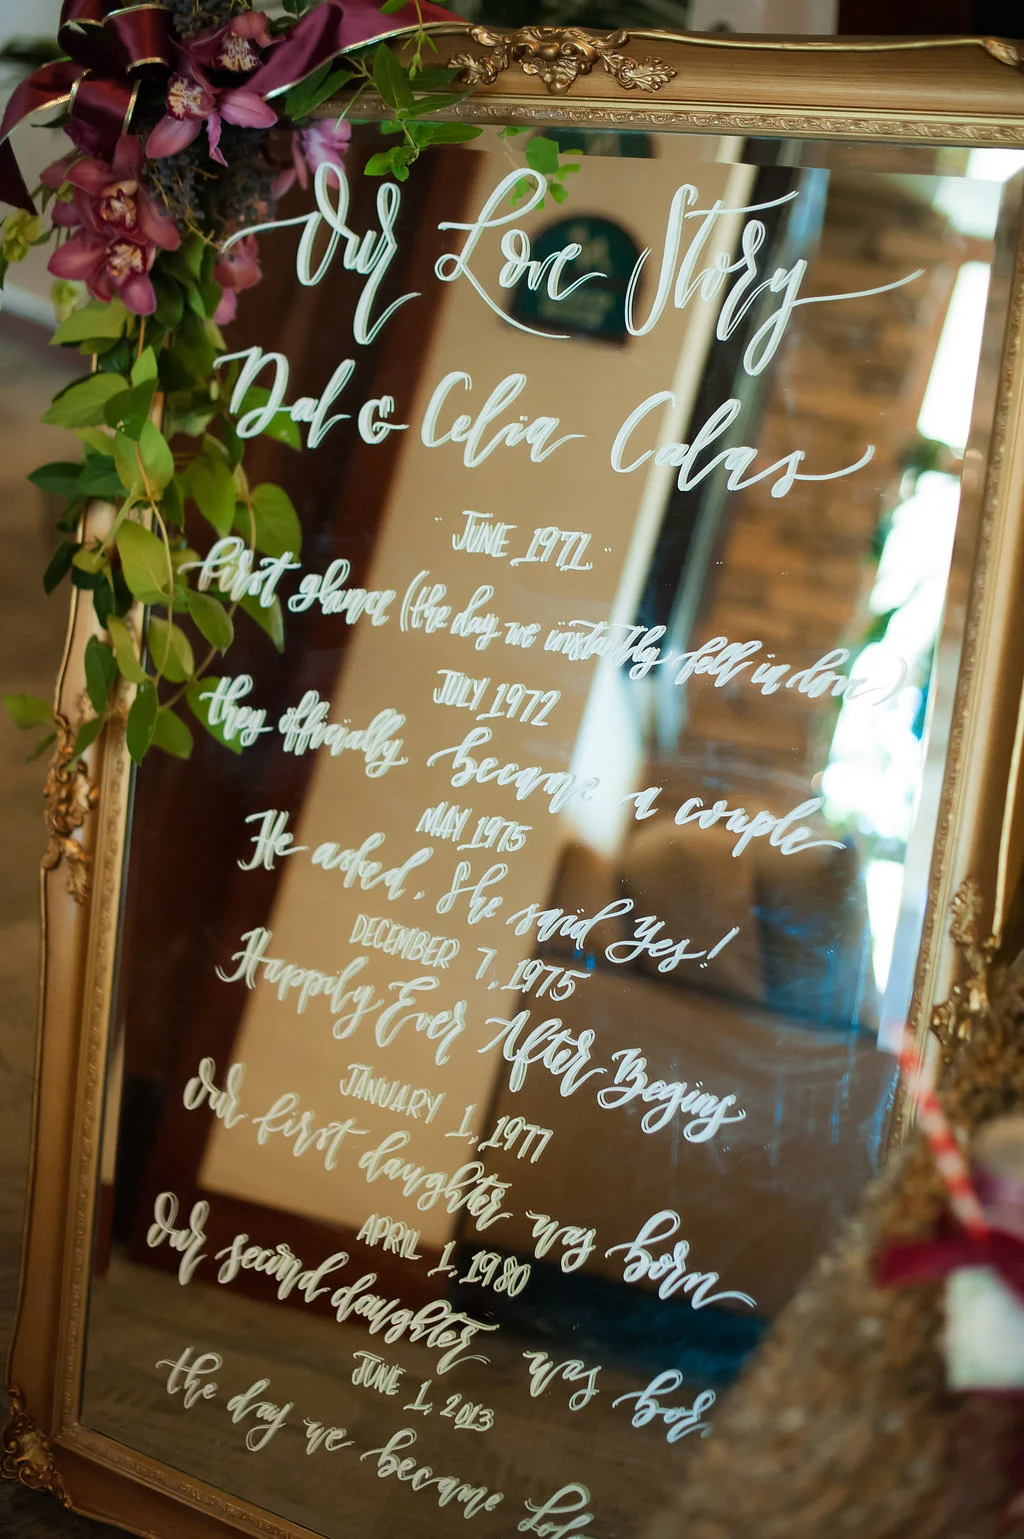 Our Love Story
Dal & Celia Calas
JUNE 1971
first glance (the day we instantly fell in love)
JULY 1972
they officially became a couple
MAY 1975
He asked, She said yes!
DECEMBER 7, 1975
Happily Ever After Begins
JANUARY 1, 1977
Our first daughter was born
APRIL 1, 1980
Our second daughter was bor
JUNE 1, 2013
the day we became